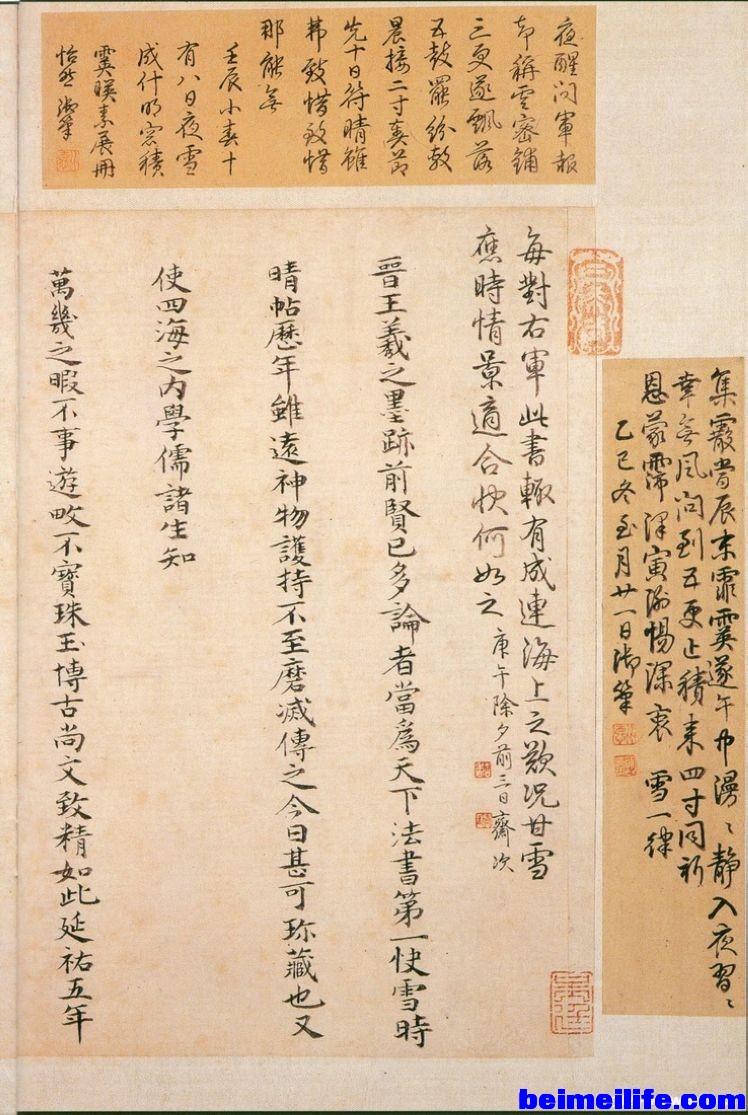 集霰當辰末霏霙遂午中漫〻靜入夜習〻
幸無風問到五更止積來四寸同祈
恩蒙霈澤寅謝惕深衷 雪一律
乙巳冬至月廿一日御筆
夜醒問軍報
却稱雲密鋪
三更遂飄落
五鼓罷紛敷
晨接二寸奏節
先十日符晴雖
弗致惜致惜
那能無
壬辰小春十
有八日夜雪
成什明窗積
霙暎素展冊
怡然御筆
每對右軍此書輒有成連海上之歎況甘雪
應時情景適合快何如之 庚午除夕前三日齋次
晉王羲之墨跡前賢已多論者當爲天下法書第一快雪時
晴帖歷年雖遠神物護持不至磨滅傳之今日甚可珎藏也又
使四海之內學儒諸生知
萬幾之暇不事遊畋不寶珠玉博古尚文致精如此延祐五年
beimeilife.com